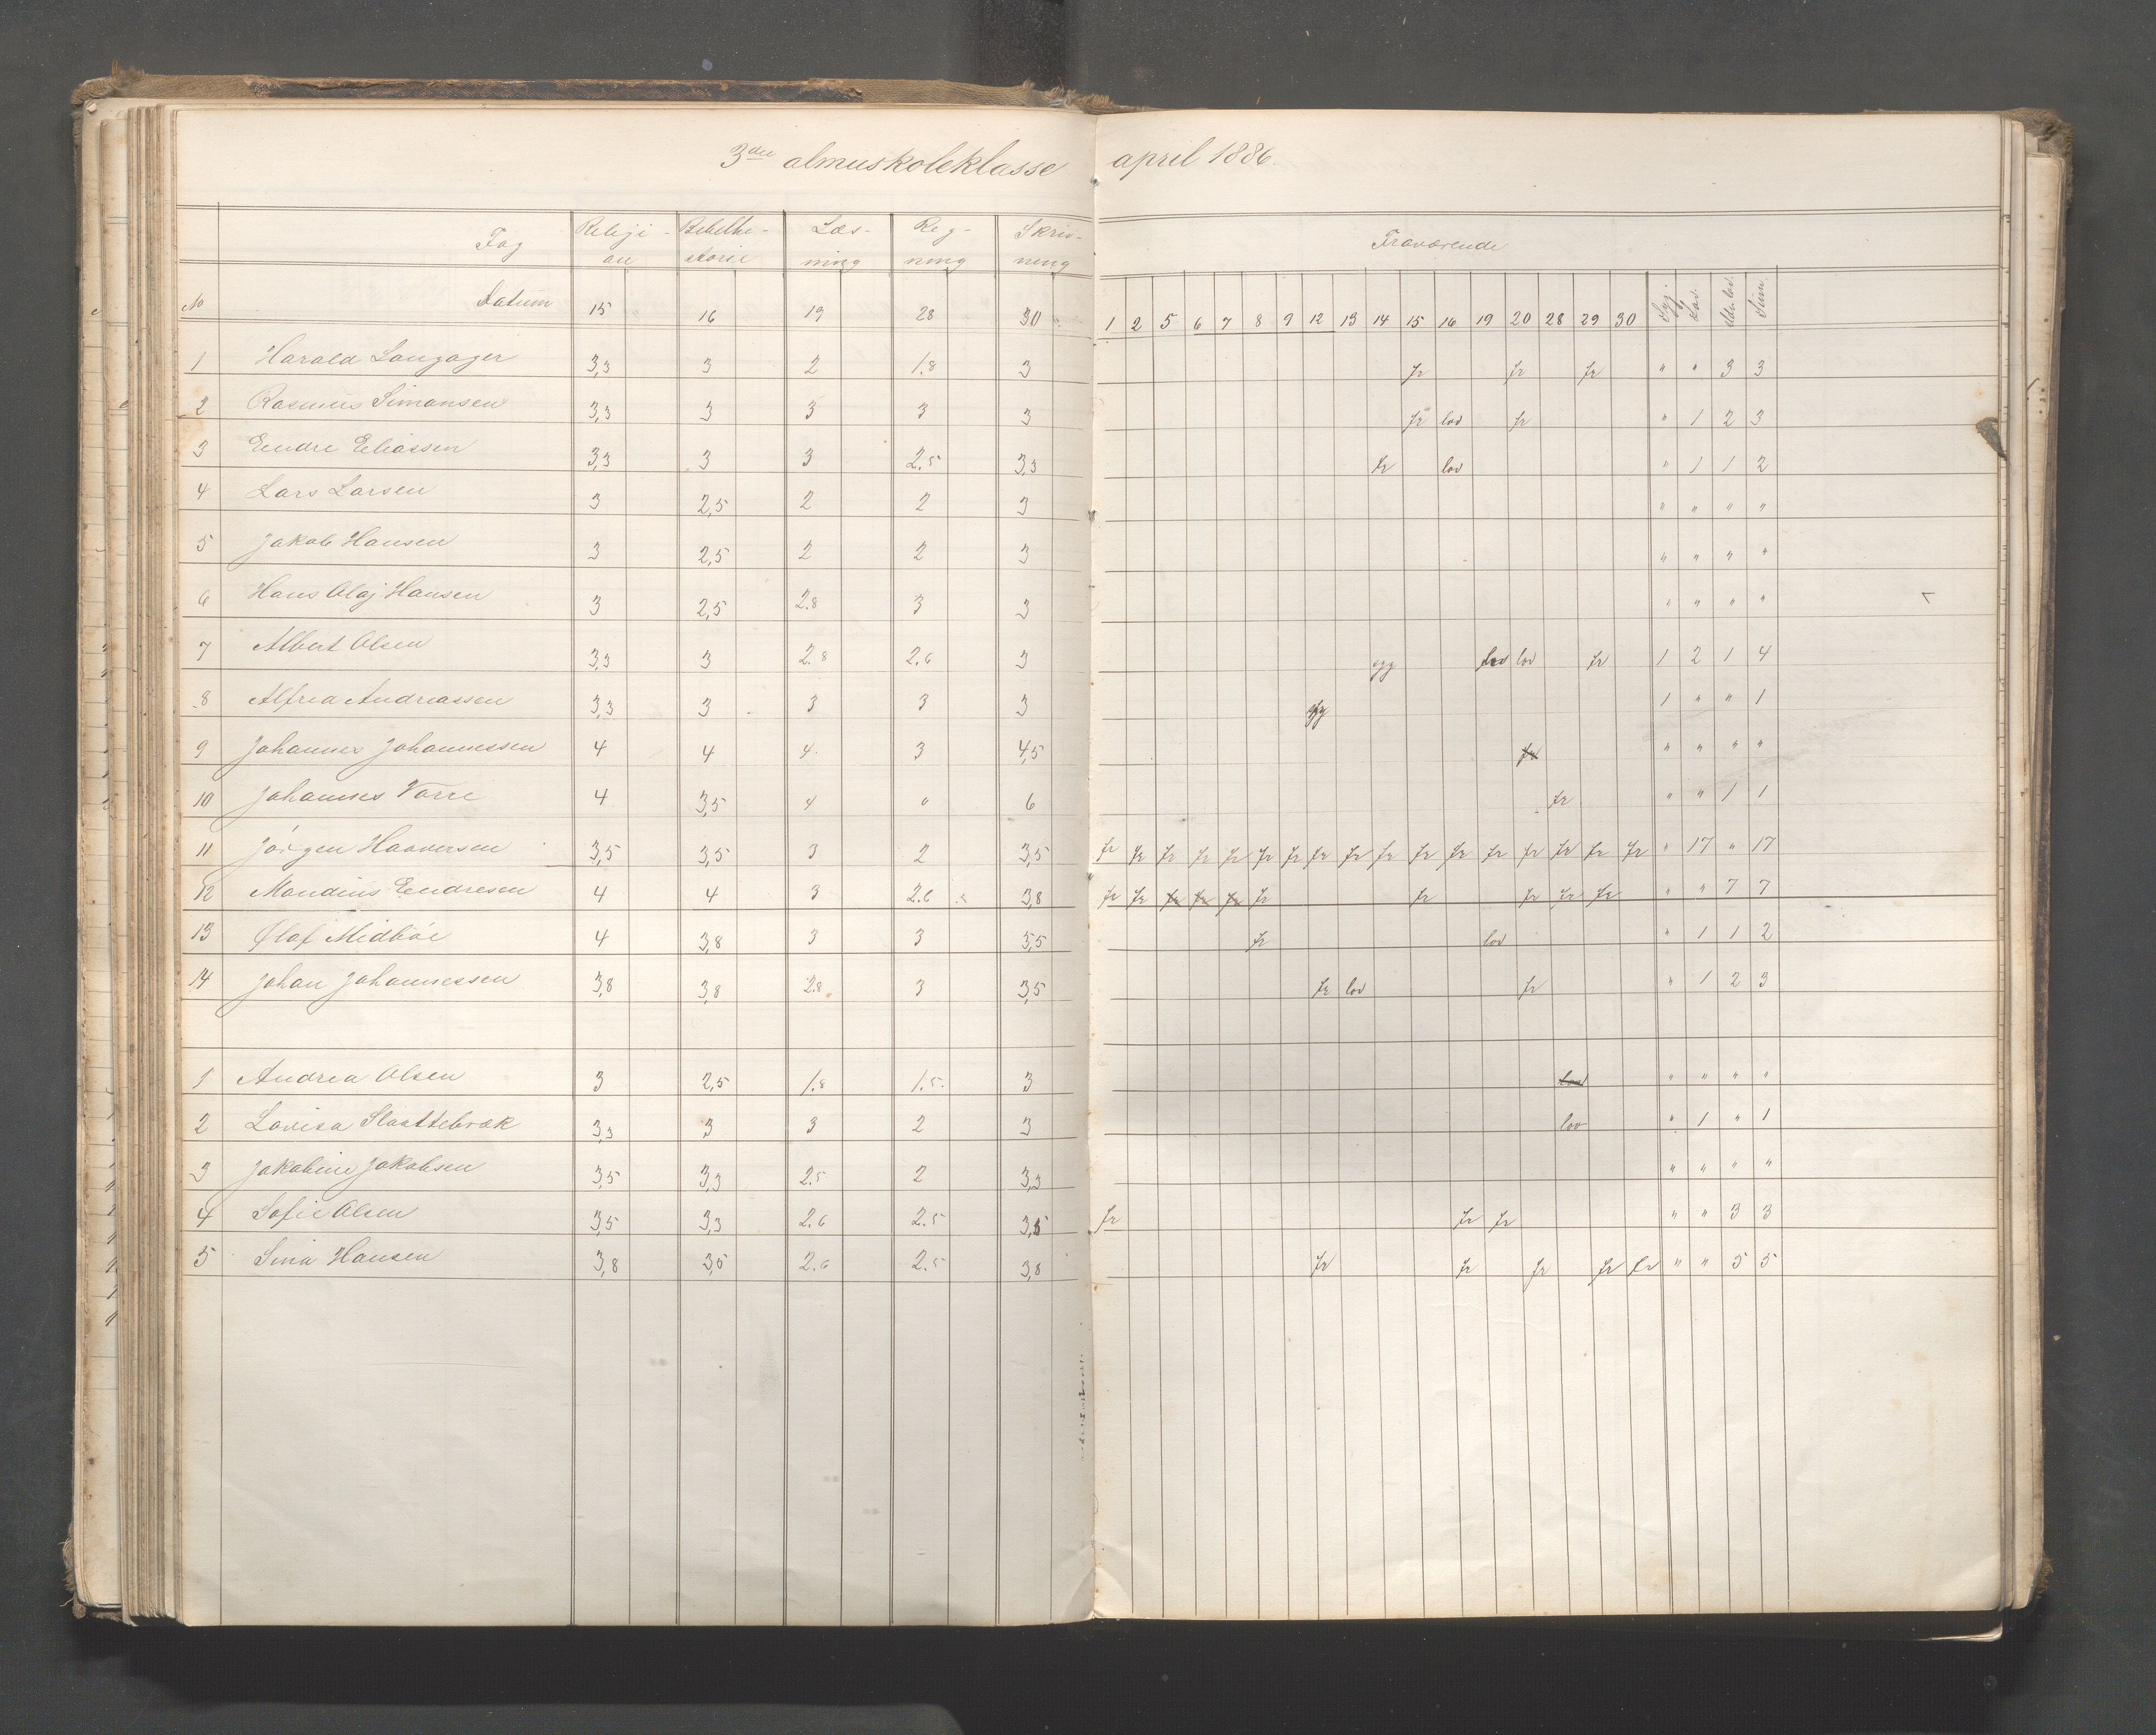 3die almuskoleklasse april 1886.
Fag Religi- Bibelhi- Læs- Reg- Skriv- Fraværende
on storie ning ning ning
No Datum 15 16 19 28 30 1 2 5 6 7 8 9 12 13 14 15 16 19 20 28 29 30 Syg. Lov. Udelov. Sum.
1 Harald Langager 3,3 3 2 1.8 3 fr fr fr " " 3 3
2 Rasmus Simonsen 3,3 3 3 3 3 fr lov fr " 1 2 3
3 Endre Eliassen 3,3 3 3 2.5 3,3 fr lov " 1 1 2
4 Lars Larsen 3 2,5 2 2 3 " " " "
5 Jakob Hansen 3 2,5 2 2 3 " " " "
6 Hans Olaj Hansen 3 2,5 2.8 3 3 " " " "
7 Albert Olsen 3,3 3 2.8 2.6 3 syg lov lov fr 1 2 1 4
8 Alfred Andreassen 3,3 3 3 3 3 syg 1 " " 1
9 Johannes Johannessen 4 4 4 3 4,5 fr " " " "
10 Johannes Varre 4 3,5 4 0 6 fr " " 1 1
11 Jörgen Haaversen 3,5 3,5 3 2 3,5 fr fr fr fr fr fr fr fr fr fr fr fr fr fr fr fr fr " 17 " 17
12 Mandius Endresen 4 4 3 2.6 3,8 fr fr fr fr fr fr fr fr fr fr " " 7 7
13 Olaf Midböe 4 3,8 3 3 3,5 fr lov " 1 1 2
14 Johan Johannessen 3,8 3,8 2.8 3 3,5 fr lov fr " 1 2 3
1 Andrea Olsen 3 2,5 1.8 1.5 3 lov " " " "
2 Lovisa Slaattebræk 3,3 3 3 2 3 lov " 1 " 1
3 Jakobine Jakobsen 3,5 3,3 2.5 2 3,3 " " " "
4 Sofie Olsen 3,5 3,3 2.6 2.5 3,5 fr fr fr " " 3 3
5 Sina Hansen 3,8 3,5 2.6 2.5 3,8 fr fr fr fr fr " " 5 5